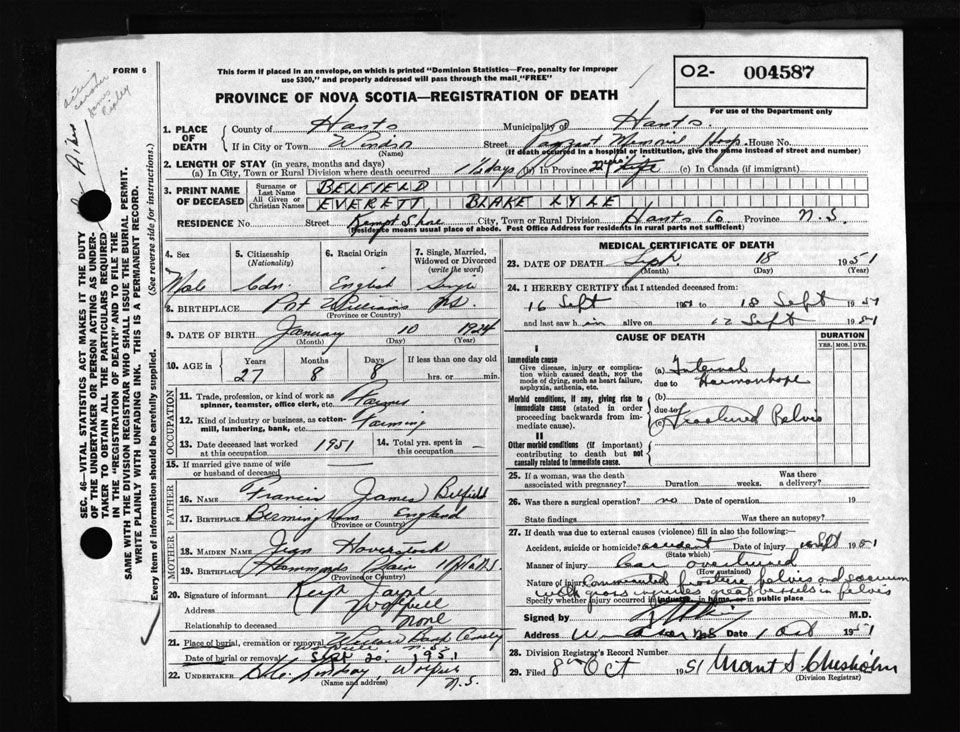 FORM 6
This form if placed in an envelope, on which is printed "Dominion Statistics—Free, penalty for improper
use $300," and properly addressed will pass through the mail "FREE"
O2- 004587
For use of the Department only
PROVINCE OF NOVA SCOTIA—REGISTRATION OF DEATH
SEC. 46—VITAL STATISTICS ACT MAKES IT THE DUTY
OF THE UNDERTAKER OR PERSON ACTING AS UNDER-
TAKER TO OBTAIN ALL THE PARTICULARS REQUIRED
IN THE "REGISTRATION OF DEATH" AND TO FILE THE
SAME WITH THE DIVISION REGISTRAR WHO SHALL ISSUE THE BURIAL PERMIT.
WRITE PLAINLY WITH UNFADING INK. THIS IS A PERMANENT RECORD.
Every item of information should be carefully supplied. (See reverse side for instructions.)
1. PLACE OF DEATH
County of Hants Municipality of Hants
If in City or Town Windsor Street Hosp House No.
(Name) (If death occurred in a hospital or institution, give the name instead of street and number)
2. LENGTH OF STAY (in years, months and days)
(a) In City, Town or Rural Division where death occurred 1½ days (b) In Province Life (c) In Canada (if immigrant)
3. PRINT NAME OF DECEASED
Surname or Last Name BELFIELD
All Given or Christian Names EVERETT BLAKE LYLE
RESIDENCE No. Street Kempt Shore City, Town or Rural Division Hants Co. Province N.S.
(Residence means usual place of abode. Post Office Address for residents in rural parts not sufficient)
4. Sex Male
5. Citizenship (Nationality) Cdn.
6. Racial Origin English
7. Single, Married, Widowed or Divorced (write the word) Single
8. BIRTHPLACE Port Williams N.S.
(Province or Country)
9. DATE OF BIRTH January 10 1924
(Month) (Day) (Year)
10. AGE in Years 27 Months 8 Days 8 If less than one day old hrs. or min.
OCCUPATION
11. Trade, profession, or kind of work as spinner, teamster, office clerk, etc. Farmer
12. Kind of industry or business, as cotton-mill, lumbering, bank, etc. Farming
13. Date deceased last worked at this occupation 1951
14. Total yrs. spent in this occupation —
15. If married give name of wife or husband of deceased —
FATHER
16. NAME Francis James Belfield
17. BIRTHPLACE Birmingham England
(Province or Country)
MOTHER
18. MAIDEN NAME Jean Haverstock
19. BIRTHPLACE Hammonds Plain
(Province or Country)
20. Signature of informant
Address Wolfville
Relationship to deceased None
21. Place of burial, cremation or removal
Date of burial or removal Sept 20, 1951
22. UNDERTAKER
(Name and address) N.S.
MEDICAL CERTIFICATE OF DEATH
23. DATE OF DEATH Sept. 18 1951
(Month) (Day) (Year)
24. I HEREBY CERTIFY that I attended deceased from:
16 Sept 1951 to 18 Sept 1951
and last saw him alive on Sept 1951
CAUSE OF DEATH
DURATION
YRS. MOS. DYS.
I
Immediate cause
Give disease, injury or complication which caused death, NOT the mode of dying, such as heart failure, asphyxia, asthenia, etc.
(a) Internal
due to Haemorrhage
Morbid conditions, if any, giving rise to immediate cause (stated in order proceeding backwards from immediate cause).
(b)
due to
(c) Fractured Pelvis
II
Other morbid conditions (if important) contributing to death but not causally related to immediate cause.
25. If a woman, was the death associated with pregnancy? Duration weeks. Was there a delivery?
26. Was there a surgical operation? no Date of operation 19
State findings Was there an autopsy?
27. If death was due to external causes (violence) fill in also the following:
Accident, suicide or homicide? accident Date of injury 16 Sept 1951
(State which)
Manner of injury Car overturned
(How sustained)
Nature of injury Comminuted fracture pelvis and sacrum
with gross injuries great vessels in pelvis
Specify whether injury occurred in industry, in home, or in public place
Signed by M.D.
Address Date 1 Oct 1951
28. Division Registrar's Record Number
29. Filed 8th Oct 1951 Grant S. Chisholm
(Division Registrar)